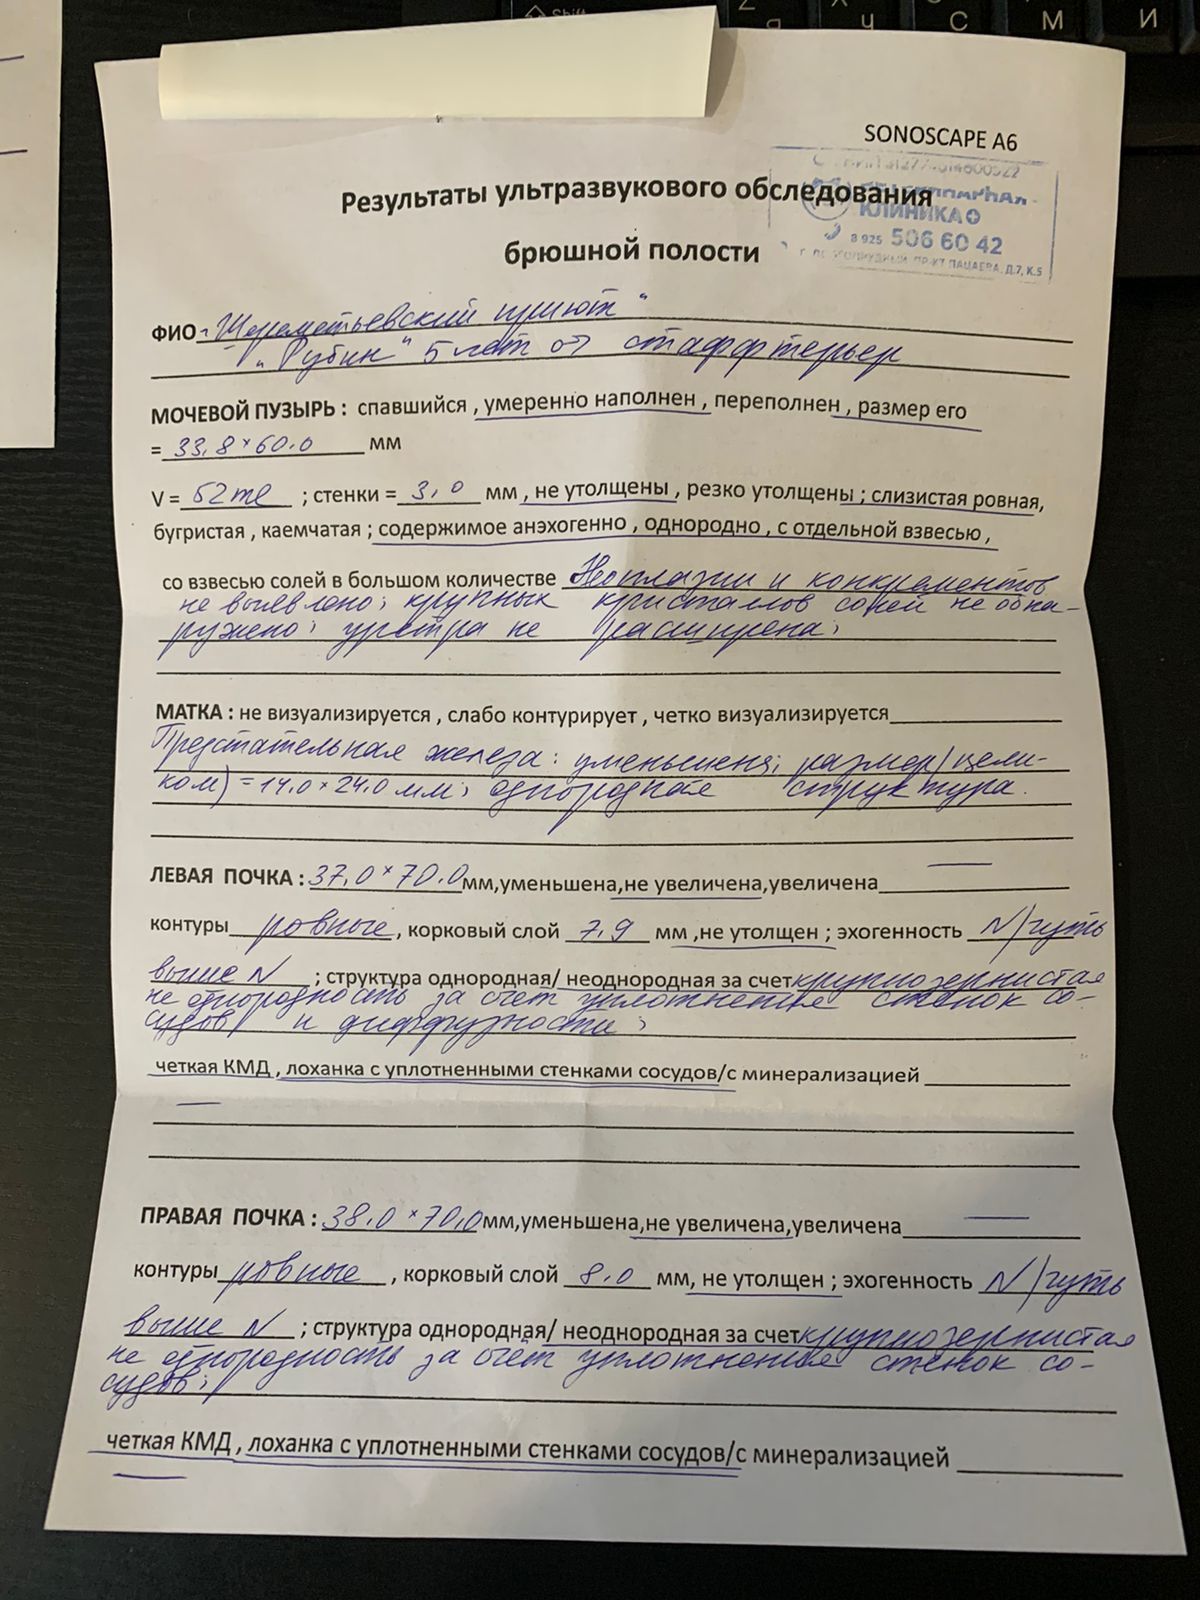 Shift
Z Я
Ч
С
М
И
SONOSCAPE A6
Результаты ультразвукового обследования
КЛИНИКА
брюшной полости
8 925 506 60 42
ПР-КТ ПАЦАЕВА, Д.7, К.5
ФИО „Шереметьевский приют"
„Рубин" 5 лет стаффтерьер
МОЧЕВОЙ ПУЗЫРЬ : спавшийся , умеренно наполнен , переполнен , размер его
= 33,8 × 60.0 мм
V = 52 ml ; стенки = 3,0 мм , не утолщены , резко утолщены ; слизистая ровная,
бугристая , каемчатая ; содержимое анэхогенно , однородно , с отдельной взвесью ,
со взвесью солей в большом количестве Неоплазии и конкрементов
не выявлено; крупных кристаллов солей не обна-
ружено; уретра не расширена;
МАТКА : не визуализируется , слабо контурирует , четко визуализируется
Предстательная железа: уменьшена; размер (цели-
ком) = 14.0 × 24.0 мм; однородная структура.
ЛЕВАЯ ПОЧКА : 37.0 × 70.0 мм,уменьшена,не увеличена,увеличена —
контуры ровные , корковый слой 7,9 мм ,не утолщен ; эхогенность N/чуть
выше N ; структура однородная/ неоднородная за счет крупнозернистая
не однородность за счет уплотнения стенок со-
судов и диффузности;
четкая КМД , лоханка с уплотненными стенками сосудов/с минерализацией
—
ПРАВАЯ ПОЧКА : 38.0 × 70,0 мм,уменьшена,не увеличена,увеличена —
контуры ровные , корковый слой 8.0 мм, не утолщен ; эхогенность N/чуть
выше N ; структура однородная/ неоднородная за счет крупнозернистая
не однородность за счёт уплотнения стенок со-
судов;
четкая КМД , лоханка с уплотненными стенками сосудов/с минерализацией
—